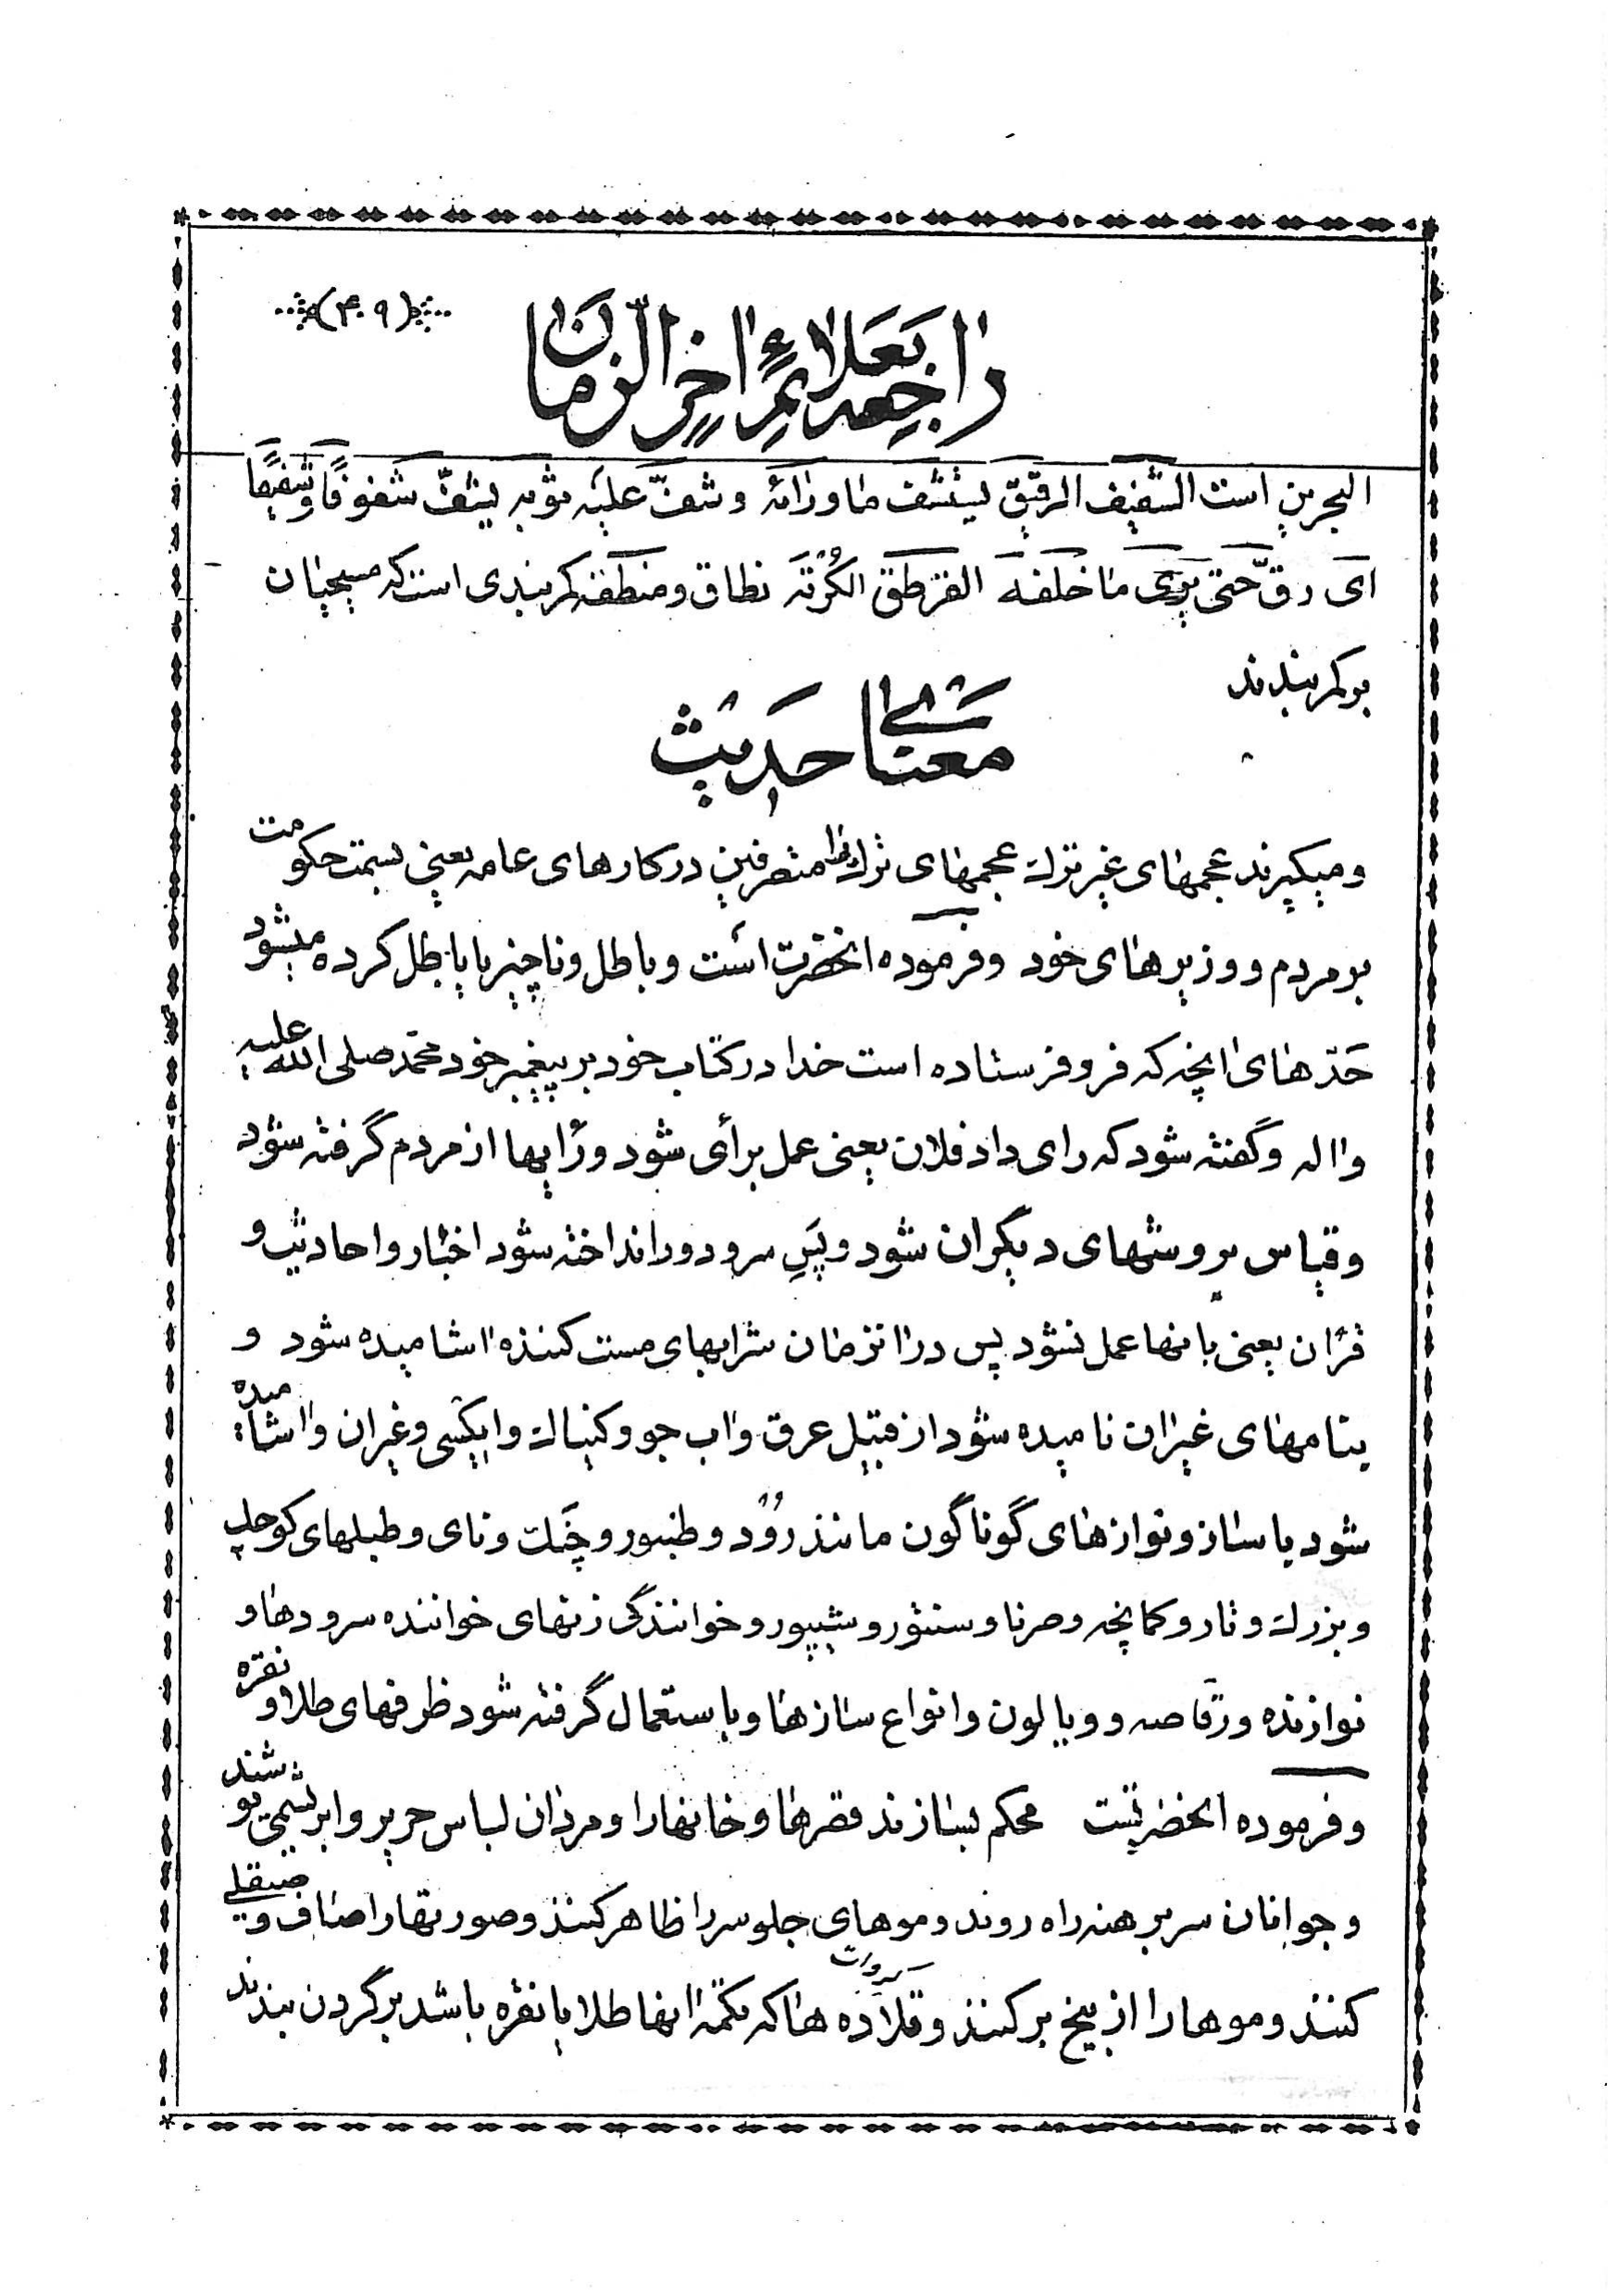 (۴۰۹)
راجعه بعلائم اخر الزمان
البحرین است الشفیف الرقیق یستشف ماورائه و شفّ علیه ثوبه یشفّ شفوفًا و شفیفًا
ای رقّ حتی یری ما خلفه القرطق الکُرته نطاق و منطقه کمربندی است که مسیحیان
بر کمر بندند
معنای حدیث
و میگیرند عجمهای غیر ترک عجمهای ترک را متصرفین در کارهای عامه یعنی بسمت حکومت
بر مردم و وزیرهای خود و فرموده انحضرت است و باطل و ناچیز یا باطل کرده میشود
حَدّهای انچه که فرو فرستاده است خدا در کتاب خود بر پیغمبر خود محمد صلی الله علیه
و اله و گفته شود که رای داد فلان یعنی عمل برأی شود و رأیها از مردم گرفته شود
و قیاس بروشهای دیگران شود و پَسِ سر و دور انداخته شود اخبار و احادیث و
قرٰان یعنی بانها عمل نشود پس در ان زمان شرابهای مست کننده اشامیده شود و
بنامهای غیر ان نامیده شود از قبیل عرق و اب جو و کنیاک و ایکسی و غیر ان و اشامیده
شود با ساز و نوازهای گوناگون مانند رود و طنبور و چنک و نای و طبلهای کوچک
و بزرک و تار و کمانچه و صرنا و سنتور و شیپور و خوانندگی زنهای خواننده سرودها و
نوازنده و رقاصه و ویالون و انواع سازها و باستعمال گرفته شود ظرفهای طلا و نقره
و فرموده انحضرتست محکم بسازند قصرها و خانها را و مردان لباس حریر و ابریشمی پوشند
و جوانان سر برهنه راه روند و موهای جلو سر را ظاهر کنند و صورتها را صاف و صیقلی
کنند و موها را از بیخ بر کنند و قلاده ها کروات که تکمه انها طلا یا نقره باشد بر گردن بندند